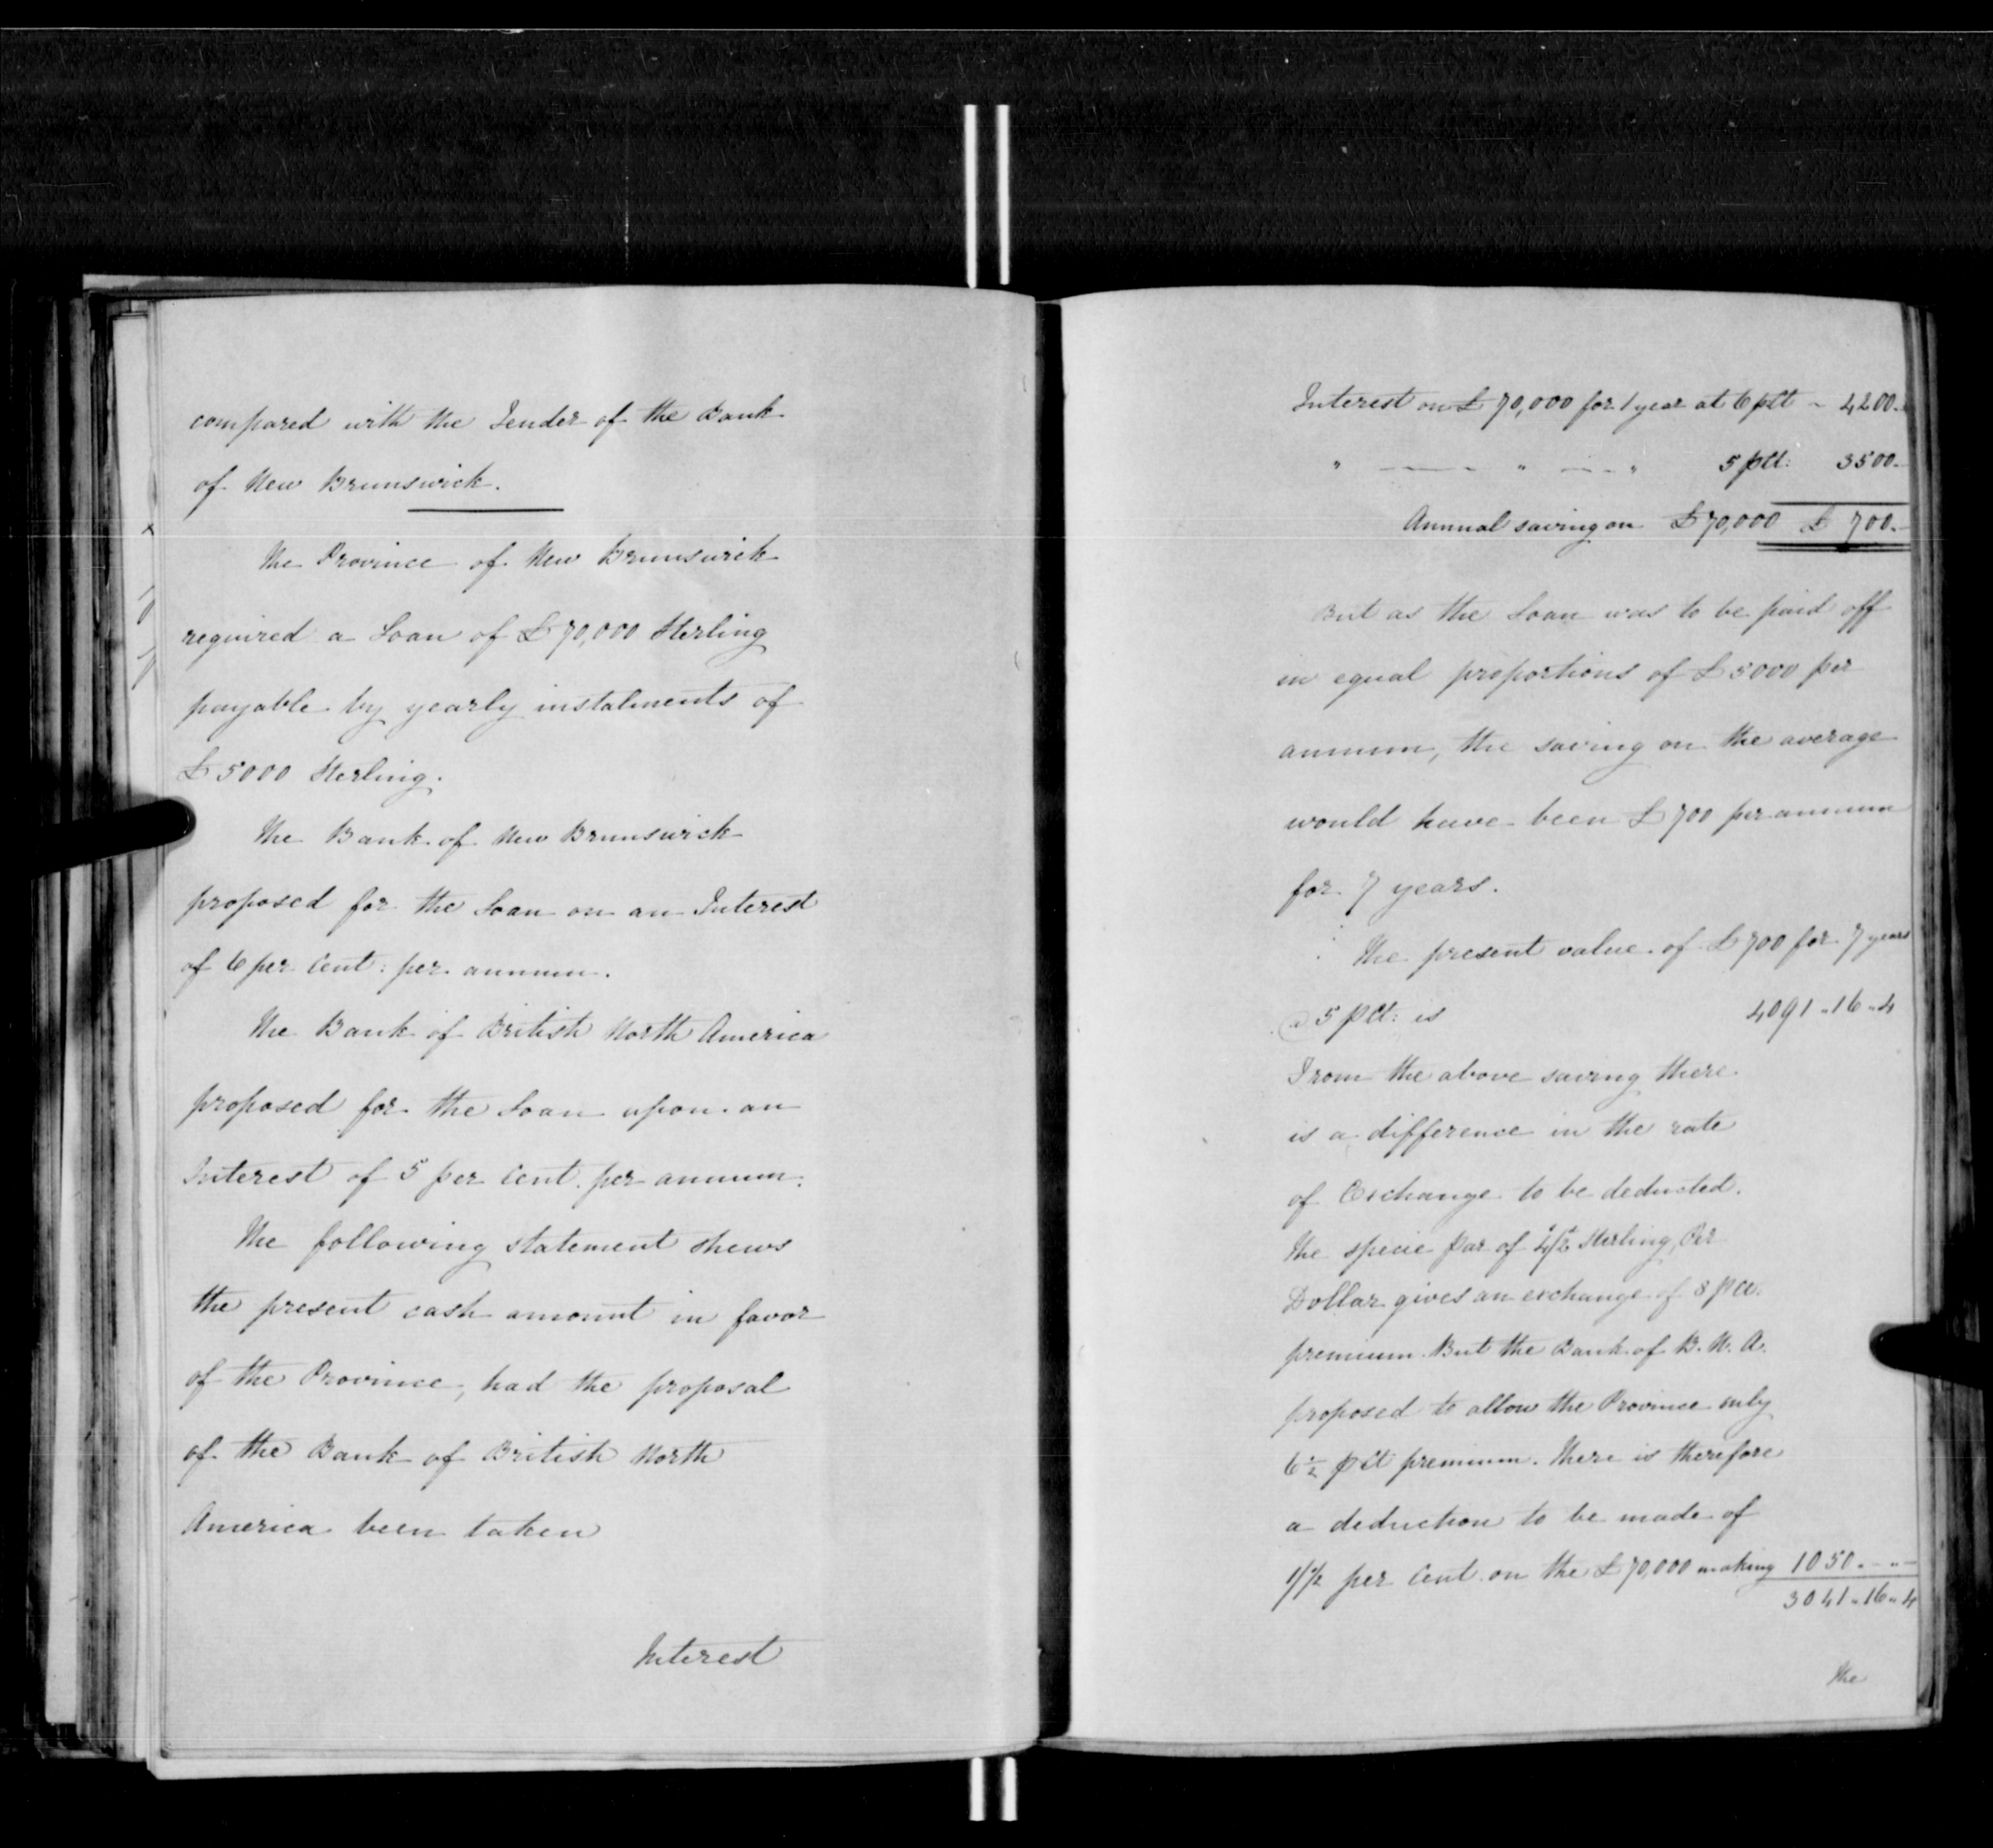 compared with the Tender of the Bank
of New Brunswick.
The Province of New Brunswick
required a Loan of £70,000 Sterling
payable by yearly instalments of
£5000 Sterling.
The Bank of New Brunswick
proposed for the Loan on an Interest
of 6 per Cent: per annum.
The Bank of British North America
proposed for the Loan upon an
Interest of 5 per Cent. per annum.
The following statement shews
the present cash amount in favor
of the Province, had the proposal
of the Bank of British North
America been taken
Interest
Interest on £70,000 for 1 year at 6 pCt - 4200.-
" ---- " --- " 5 pCt: 3500.-
Annual saving on £70,000 £ 700.-
But as the Loan was to be paid off
in equal proportions of £5000 per
annum, the saving on the average
would have been £700 per annum
for 7 years.
The present value of £700 for 7 years
@ 5 pCt: is 4091..16..4
From the above saving there
is a difference in the rate
of Exchange to be deducted.
The specie par of 4/2 Sterling, Per
Dollar gives an exchange of 8 pCt.
premium. But the Bank of B. N. A.
proposed to allow the Province only
6 1/2 pCt premium. There is therefore
a deduction to be made of
1 1/2 per Cent on the £70,000 making 1050.-..-
3041..16..4
The